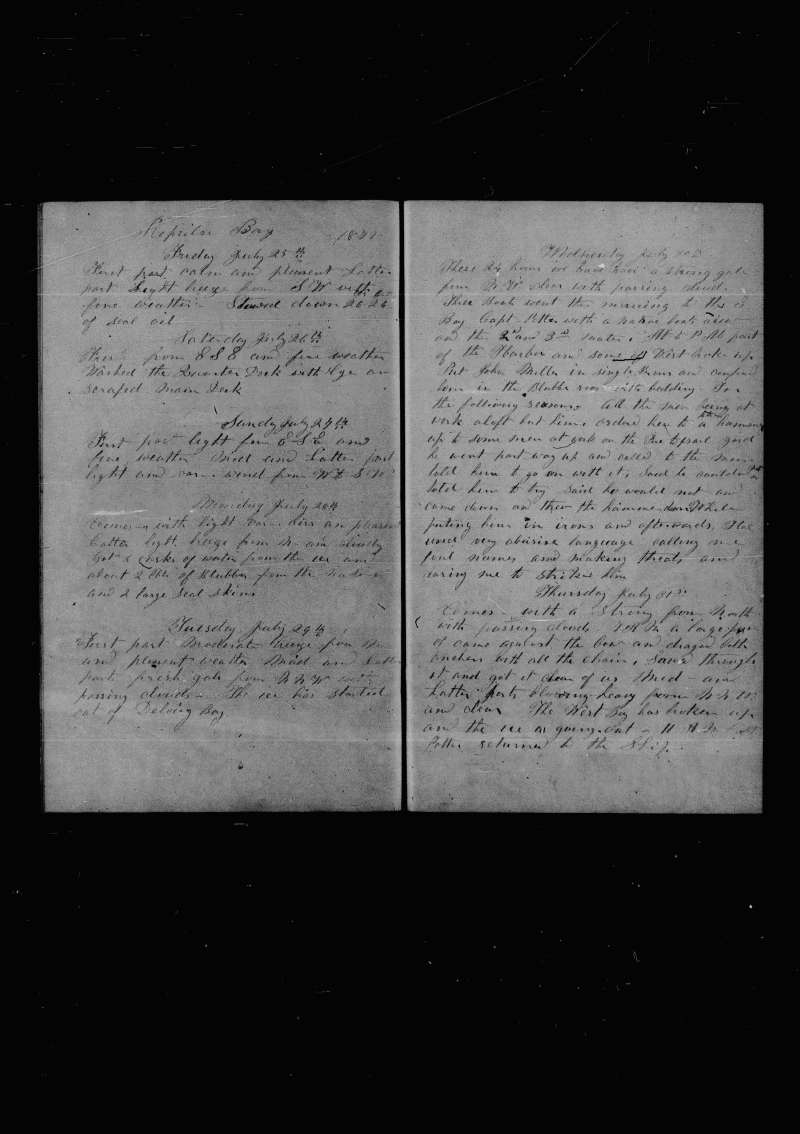 Bay 1879
Friday July 25th
First part calm and pleasent Latter
part Light breeze from S W with
fine weather - Stowed down
of Seal oil
Saturday July 26th
from E S E and fine weather
Washed the Quarter Deck with lye an
scraped Main Deck
Sandy July 27th
First part light from E S E and
fine weather Mid and Latter part
light and vari wind from W & S W
Monday July 28th
Comes - with light vari dirs an pleasent
Latter light breeze from N an cloudy
Got casks of water from the ice and
about 2 of Blubber from the
and 2 large Seal Skins
Tuesday July 29th
First part Moderate breeze from
and plesent weather Mid and Latter
part fresh gale from N N W with
passing clouds - The ice has started
out of Bay
Wednesday July 30th
These 24 hours we have had a strong gale
from N W clear with passing clouds
Three Boats went this morning to the E
Bay Capt Potter with a native boats crew
and the 2nd and 3rd mates. At 5 P M part
of the Harbor and some of West broke up
Put John Miller in single Irons and confined
him in the Blubber room with bedding - For
the following reasons. All the men being at
work aloft but him, ordered him to take a hammer
up to some men at work on the Fore topsail yard
he went part way up and called to the men
told him to go on with it, Said he couldn't
told him to try Said he would not and
came down an threw the hammer down While
puting him in irons and afterwards He
used very abusive language calling me
foul names and making threats and
daring me to strike him
Thursday July 31st
Comes - with a Strong from North
with passing clouds. a large piece
of came against the bow and draged both
anchors with all the chain, Sawed through
it and got it clear of us Mid - and
Latter parts blowing heavy from N N W
and clear The West Bay has broken up
and the ice is going out - 11 A M Capt
Potter returned to the Ship.